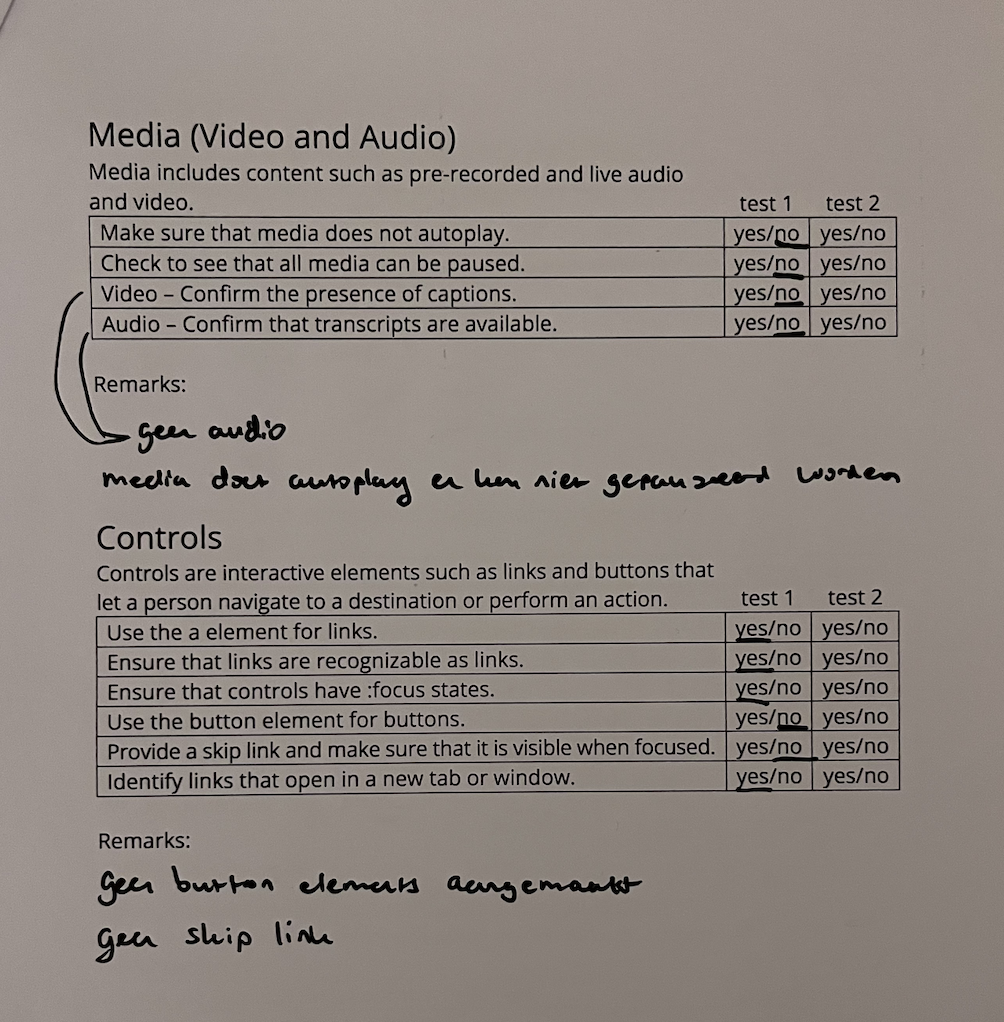 Media (Video and Audio)
Media includes content such as pre-recorded and live audio
and video. test 1 test 2
Make sure that media does not autoplay. yes/no yes/no
Check to see that all media can be paused. yes/no yes/no
Video – Confirm the presence of captions. yes/no yes/no
Audio – Confirm that transcripts are available. yes/no yes/no
Remarks:
geen audio
media doet autoplay en kan niet gepauzeerd worden
Controls
Controls are interactive elements such as links and buttons that
let a person navigate to a destination or perform an action. test 1 test 2
Use the a element for links. yes/no yes/no
Ensure that links are recognizable as links. yes/no yes/no
Ensure that controls have :focus states. yes/no yes/no
Use the button element for buttons. yes/no yes/no
Provide a skip link and make sure that it is visible when focused. yes/no yes/no
Identify links that open in a new tab or window. yes/no yes/no
Remarks:
geen button elements aangemaakt
geen skip link